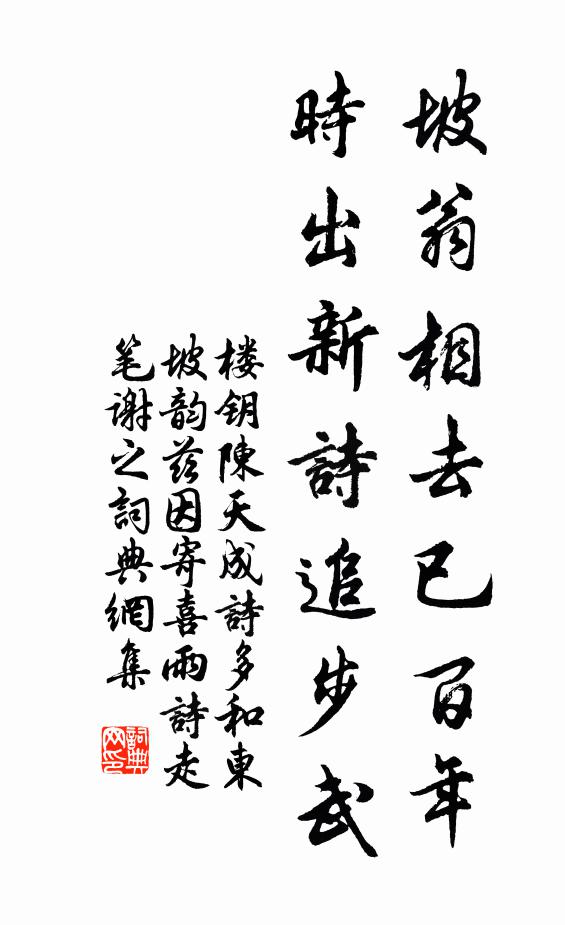 坡翁相去已百年
時出新詩追步武
楼钥陳天成詩多和東
坡韵兹因寄喜雨詩走
笔谢之詞典網集
詞典网印